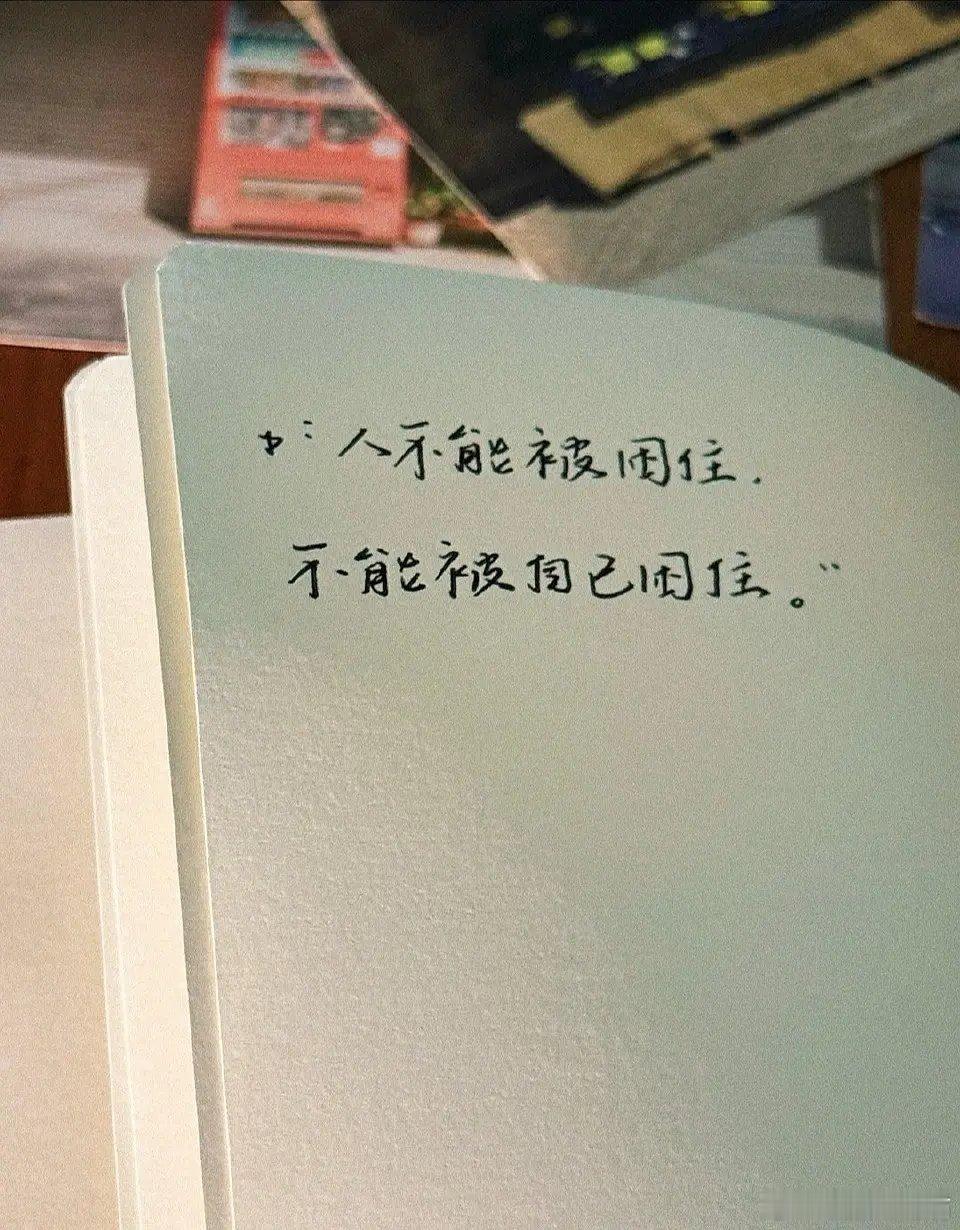 “人不能被困住.
不能被自己困住。”